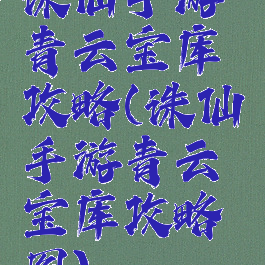 诛仙手游
青云宝库
攻略(诛仙
手游青云
宝库攻略
图)